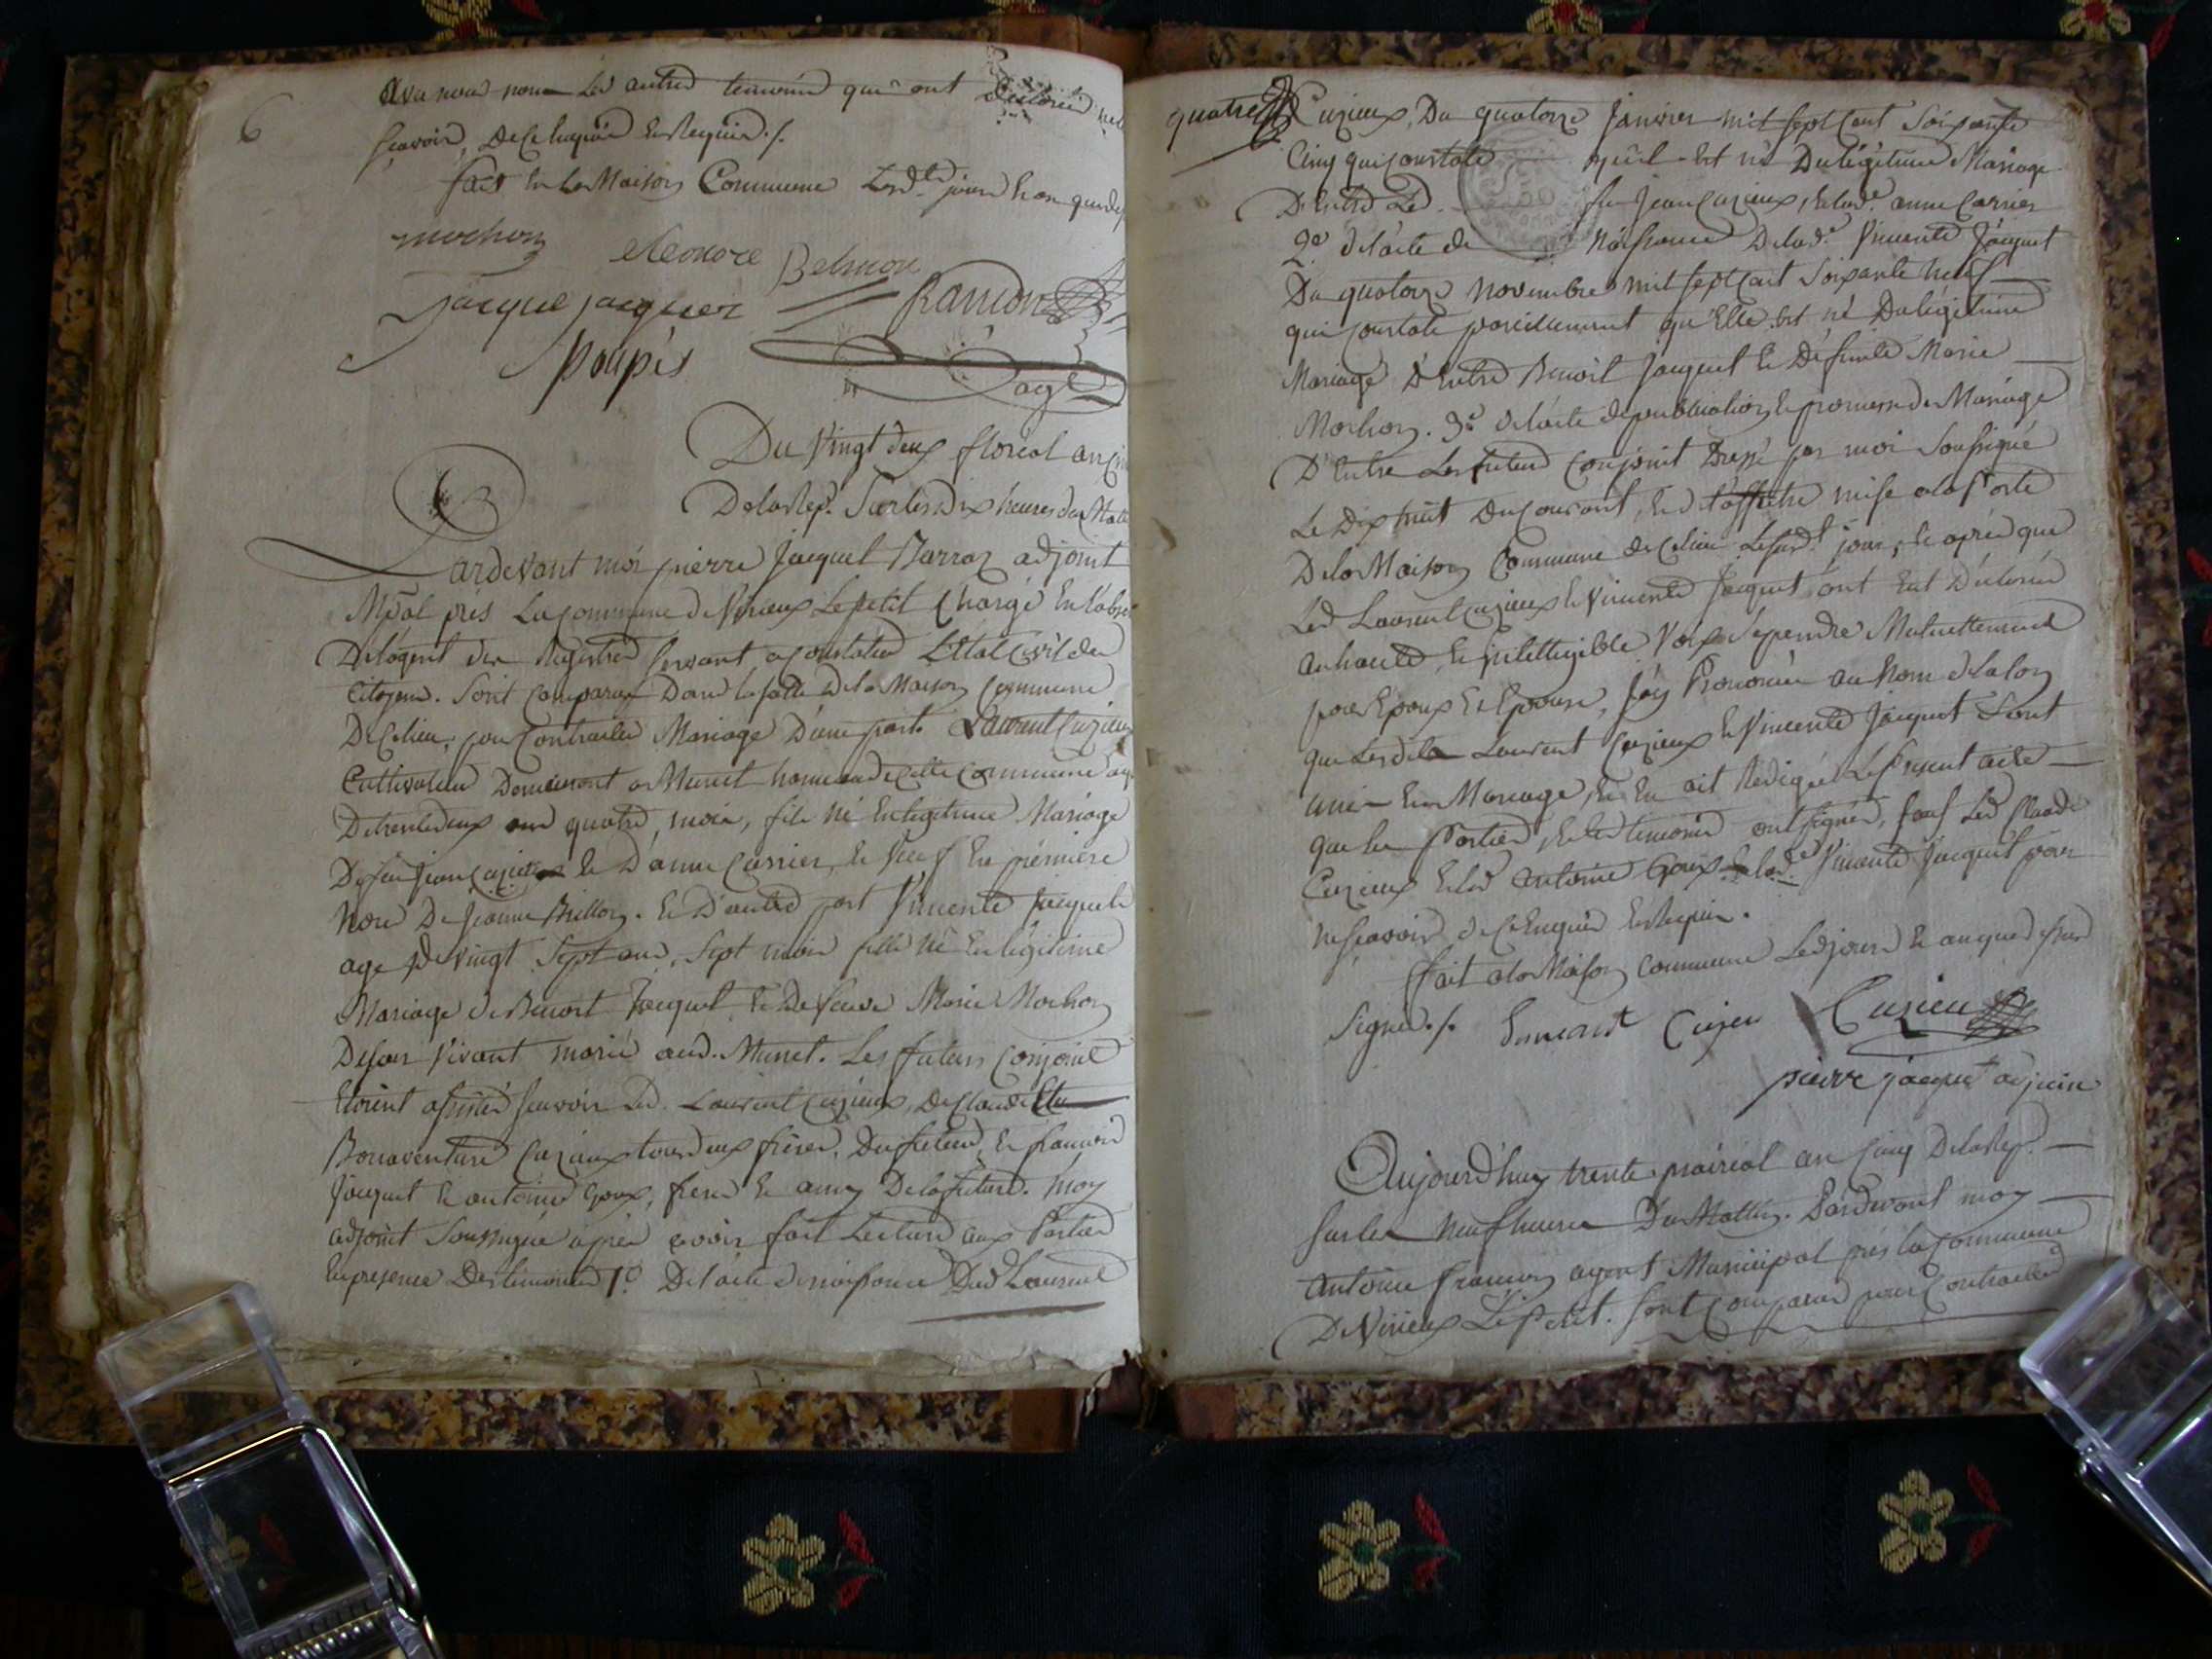 6
avu nous nom les autres temoins qui ont
scavoir, De ce Enquis Et Requis ./.
fait En La Maison Commune Lesd. jour
mochon
eleonore Belmon
Ramon
jacque jacquet
poupés
agt
Du Vingt deux floreal an
De la Rep. Sur les Dix heures du Mat
Pardevant moi pierre Jacquet Barraz adjoint
Mpal prés La commune de Virieux Le petit Chargé En
De L'agent des Registres servant a constater L'Etat Civil des
Citoyens. Sont comparus Dans la salle De la Maison Commune
De Ce lieu, pour Contracter Mariage D'une part. Laurent Cuzieux
Cultivateur Demeurant a Munet hameau de Cette Commune
De trente deux ans quatre mois, fils né En legitime Mariage
De feu Jean Cuzieux Et D'anne Carrier, Et Veuf En premiere
Noce De Jeanne Billon. Et D'autre part Vincente Jacquet
age De Vingt Sept ans, Sept mois fille né En légitime
Mariage de Benoit Jacquet Et De feue Marie Mochon
De son Vivant marié aud. Munet. Les futurs Conjoint
Etoient assistés scavoir Led. Laurent Cuzieux, De Claude Et
Bonaventure Cuzieux tous deux freres, Du futeur, Et francois
Jacquet Et antoine Goux, frere Et amy De la future. Moy
adjoint Soussigné aprés avoir fait Lecture aux Parties
En presence Des temoins 1o De l'acte de naissance Dud Laurent
quatre
Cuzieux, Du quatorze Janvier mil sept Cent Soixante
Cinq qui constate qu'il Est né Du légitime Mariage
D'Entre Led. feu Jean Cuzieux, Et lad.e anne Carrier
2o de l'acte de Naissance De lad.e Vincente Jacquet
Du quatorze Novembre mil sept Cent Soixante Neuf
qui constate pareillement qu'Elle Est né Du légitime
Mariage D'Entre Benoit Jacquet Et Defunte Marie
Mochon. 3o de l'acte de publication de promesse de Mariage
D'Entre Les futurs Conjoint Dressé par moi Soussigné
Le Dix huit Du Courant, Et affiché mise a la Porte
De la Maison Commune de Ce lieu Le susd.t jour, Et aprés que
Led Laurent Cuzieux Et Vincente Jacquet ont Eut Déclarés
a haute, Et intelligible Voix Se prendre Mutuellement
pour Epoux Et Epouse, J'ay Prononcé au Nom de la Loy
que Lesdits Laurent Cuzieux Et Vincente Jacquet Sont
unis En Mariage, Et En ait Rédigé Le Present acte
que les Parties, Et les temoins ont signés, sauf Led Claude
Cuzieux Et led Antoine Goux Et lad.e Vincente Jacquet pour
ne scavoir de Ce Enquis Et Requis.
fait a la Maison Commune Led jour Et an que dessus
Signés ./. Cuzieu
pierre jacquet adjoin
Aujourd'huy trente prairial an Cinq De la Rep.
sur les Neuf heures Du Matin. Pardevant moy
Antoine francon agent Municipal prés la Commune
De Virieux Le Petit. Sont Comparus pour Contracter